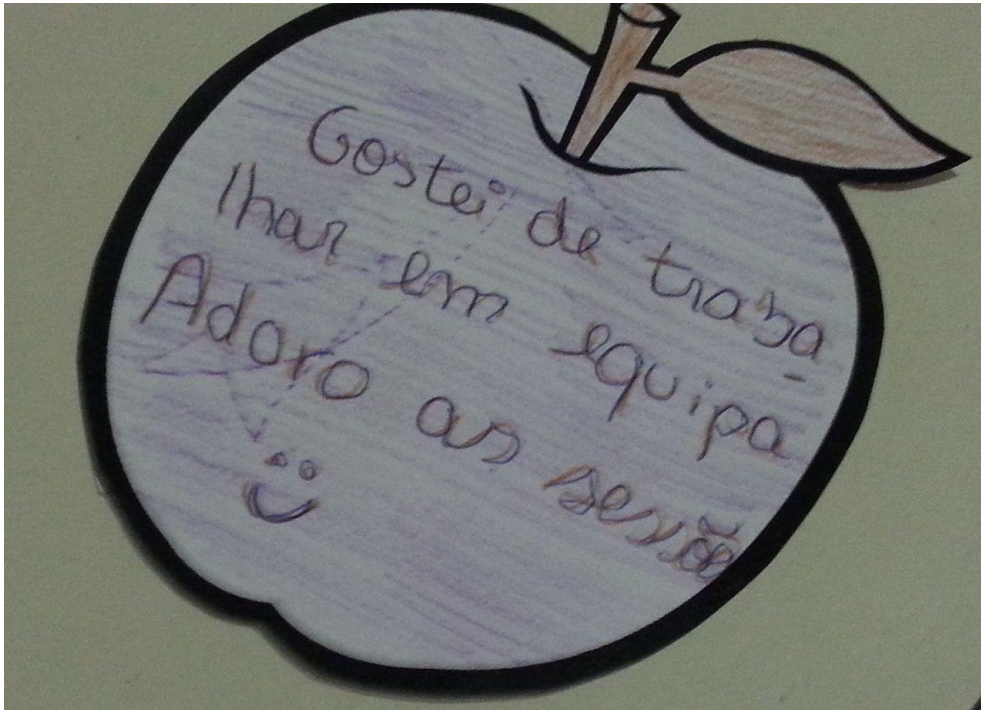 Gostei de traba
-
lhar em equipa
Adoro as sessõe